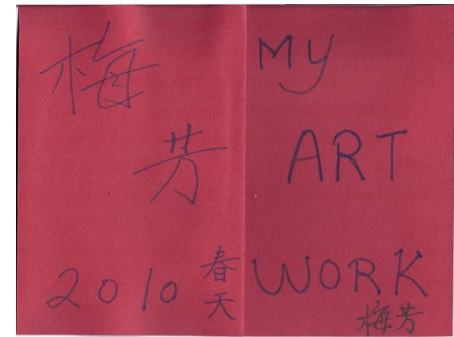 梅
芳
2010 春天
MY
ART
WORK
梅芳